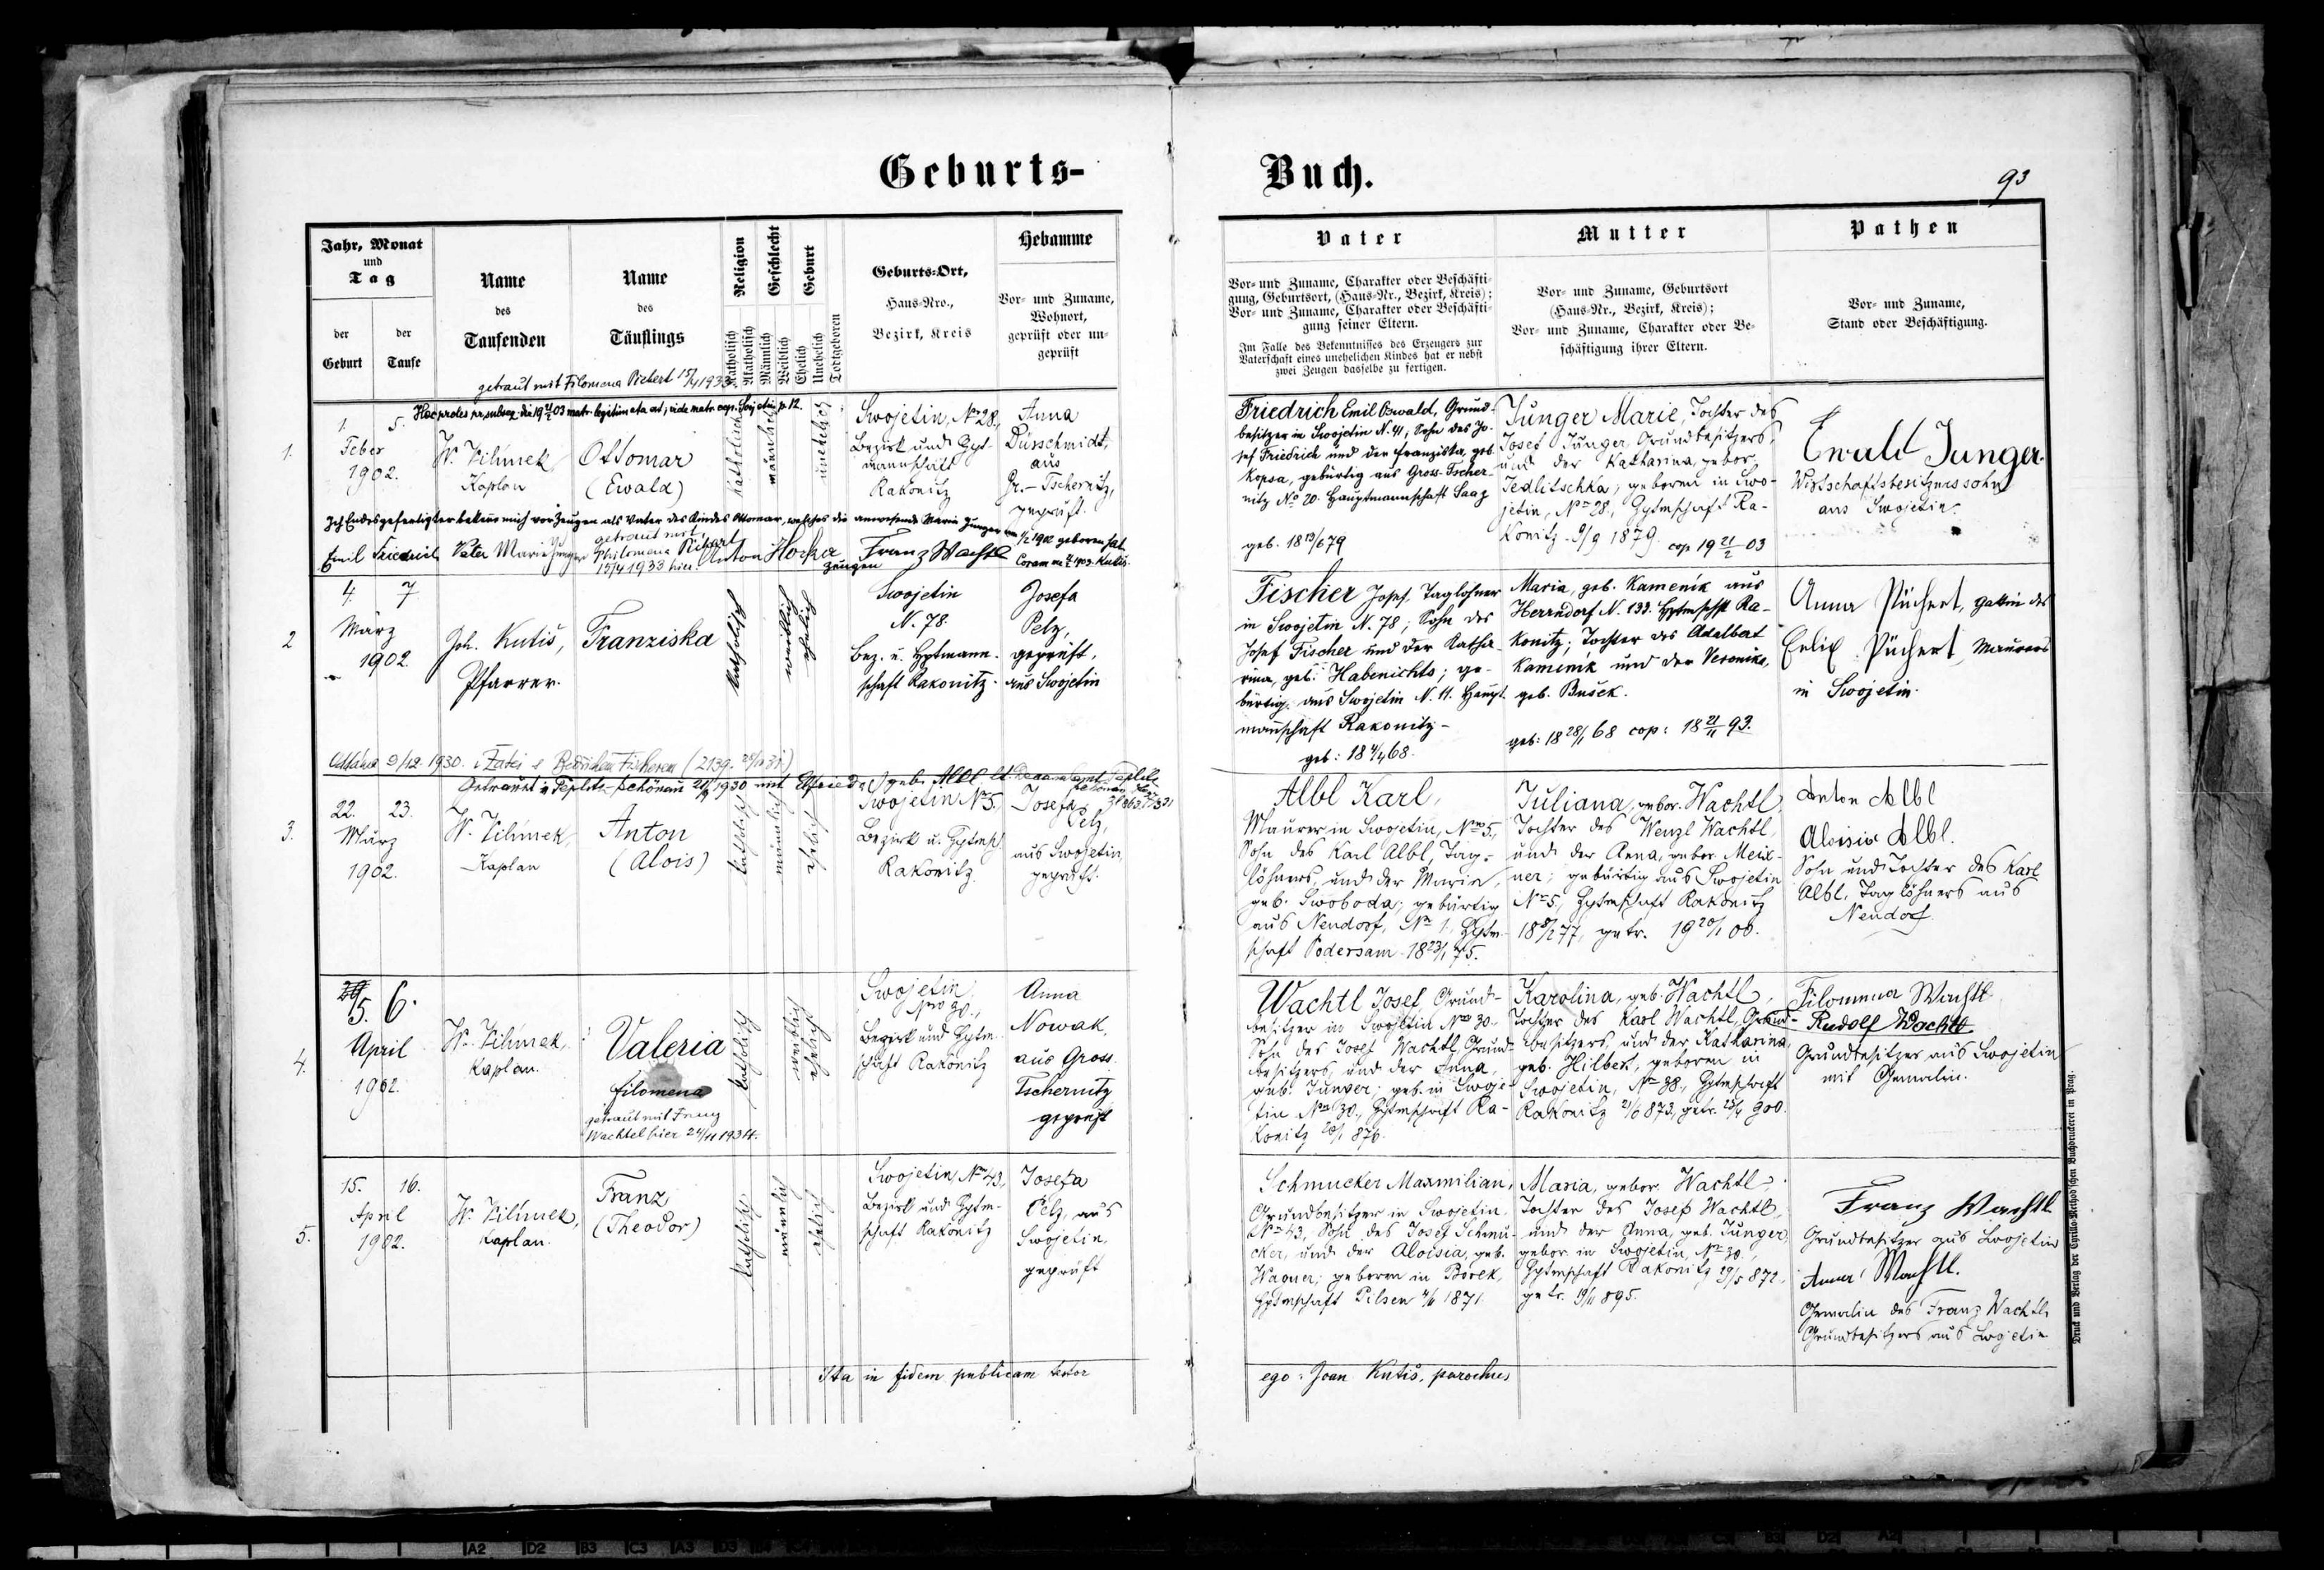 Geburts-
Buch.
93
Jahr, Monat
und
Tag
der
Geburt
der
Taufe
Name
des
Taufenden
Name
des
Täuflings
Religion
Katholisch
Akatholisch
Geschlecht
Männlich
Weiblich
Geburt
Ehelich
Unehelich
Todtgeboren
Geburts-Ort,
Haus-Nro.,
Bezirk, Kreis
Hebamme
Vor- und Zuname,
Wohnort,
geprüft oder un-
geprüft
Vater
Vor- und Zuname, Charakter oder Beschäfti-
gung, Geburtsort, (Haus-Nr., Bezirk, Kreis);
Vor- und Zuname, Charakter oder Beschäfti-
gung seiner Eltern.
Im Falle des Bekenntnisses des Erzeugers zur
Vaterschaft eines unehelichen Kindes hat er nebst
zwei Zeugen dasselbe zu fertigen.
Mutter
Vor- und Zuname, Geburtsort
(Haus-Nr., Bezirk, Kreis);
Vor- und Zuname, Charakter oder Be-
schäftigung ihrer Eltern.
Pathen
Vor- und Zuname,
Stand oder Beschäftigung.
getraut mit Filomena Pichert 15/4 1933
Hoc proles pr. subseq. die 19 21/2 03 matr. legitimata est; vide matr. cop. Svojetin p. 12.
1.
1.
5.
Feber
1902.
W. Vilímek
Kaplan
Ottomar
(Ewald)
katholisch
männlich
unehelich
Swojetin, No 28.,
Bezirk und Hpt-
mannschaft
Rakonitz
Anna
Dürschmidt,
aus
Gr.-Tschernitz,
geprüft.
Friedrich Emil Oswald, Grund-
besitzer in Swojetin N. 41; Sohn des Jo-
sef Friedrich und der Franziska, geb.
Kopsa, gebürtig aus Gross-Tscher-
nitz No 20. Hauptmannschaft Saaz
geb. 18 13/6 79
Junger Marie, Tochter des
Josef Junger, Grundbesitzers,
und der Katharina, gebor.
Jedlitschka; geboren in Swo-
jetin, No 28., Hptmschaft Ra-
konitz 9/9 1879. cop 19 21/2 03
Ewald Junger.
Wirtschaftsbesitzerssohn
aus Swojetin.
Ich Endesgefertigter bekenne mich vor Zeugen als Vater des Kindes Ottomar, welches die anwesende Marie Junger am
1/2 1902 geboren hat.
Emil Friedrich Vater Marie Junger
getraut mit
Philomena Pichert
15/4 1933 hier.
Anton Hocka Franz Wachtl
Zeugen
Coram me 1903. Kutiš.
2
4.
7.
März
1902.
Joh. Kutiš,
Pfarrer.
Franziska
katholisch
weiblich
ehelich
Swojetin
N. 78.
Bez. u. Hptmann-
schaft Rakonitz.
Josefa
Pelz,
geprüft,
aus Swojetin
Fischer Josef, Taglöhner
in Swojetin N. 78; Sohn des
Josef Fischer und der Katha-
rina, geb. Habenichts; ge-
bürtig aus Swojetin N. 11. Haupt-
mannschaft Rakonitz-
geb: 18 4/4 68.
Maria, geb. Kameník aus
Herrndorf N. 133. Hptmschft Ra-
konitz; Tochter des Adalbert
Kameník und der Veronika,
geb. Bušek.
geb: 18 28/1 68 cop: 18 21/11 93.
Anna Püchert, Gattin des
Felix Püchert, Maurers
in Swojetin.
Oddána 9/12 1930.
Getraut in Teplitz-Schönau 1930 mit geb. Albl
3.
22.
23.
März
1902.
W. Vilímek,
Kaplan
Anton
(Alois)
katholisch
männlich
ehelich
Swojetin No 5,
Bezirk u. Hptmsch
Rakonitz.
Josefa
Pelz,
aus Swojetin,
geprüft.
Albl Karl,
Maurer in Swojetin, Nro 5,
Sohn des Karl Albl, Tag-
löhners, und der Marie,
geb. Swoboda; gebürtig
aus Neudorf, No 1., Hptm-
schaft Podersam 18 23/1 75.
Juliana, gebor. Wachtl,
Tochter des Wenzl Wachtl,
und der Anna, gebor. Meix-
ner; gebürtig aus Swojetin
No 5., Hptmschaft Rakonitz
77, getr. 19 20/1 00.
Anton Albl
Aloisie Albl.
Sohn und Tochter des Karl
Albl, Taglöhners aus
Neudorf.
4.
5.
6.
April
1902.
W. Vilímek,
Kaplan.
Valeria
Filomena
getraut mit Franz
Wachtel hier 24/11 1934.
katholisch
weiblich
ehelich
Swojetin
Nro 30.,
Bezirk und Hptm-
schaft Rakonitz
Anna
Nowak,
aus Gross
Tschernitz
geprüft
Wachtl Josef Grund-
besitzer in Swojetin Nro 30.
Sohn des Josef Wachtl, Grund-
besitzers, und der Anna,
geb. Junger; geb. in Swoje-
tin Nro 30., Hptmschaft Ra-
konitz 876.
Karolina, geb. Wachtl,
Tochter des Karl Wachtl, Grund-
besitzers, und der Katharina
geb. Hilbert, geboren in
Swojetin, No 38., Hptmschaft
Rakonitz 21/6 873, getr. 25/4 900.
Filomena Wachtl
Rudolf Wachtl
Grundbesitzer aus Swojetin
mit Gemalin.
5.
15.
16.
April
1902.
W. Vilímek,
Kaplan.
Franz,
(Theodor)
katholisch
männlich
ehelich
Swojetin, No 43,
Bezirk und Hptm-
schaft Rakonitz
Josefa
Pelz, aus
Swojetin,
geprüft
Schmucker Maxmilian,
Grundbesitzer in Swojetin
No 43, Sohn des Josef Schmu-
cker, und der Aloisia, geb.
Wagner; geboren in Borek,
Hptmschaft Pilsen 1871.
Maria, gebor. Wachtl,
Tochter des Josef Wachtl,
und der Anna, geb. Junger,
gebor. in Swojetin, No 30.,
Hptmschaft Rakonitz 29/5 872,
getr. 19/11 895.
Franz Wachtl
Grundbesitzer aus Swojetin
Anna Wachtl.
Gemalin des Franz Wachtl,
Grundbesitzers aus Swojetin
Ita in fidem publicam testor
ego: Joan Kutiš, parochus
Druck und Verlag der Cyrillo-Method'schen Buchdruckerei in Prag.